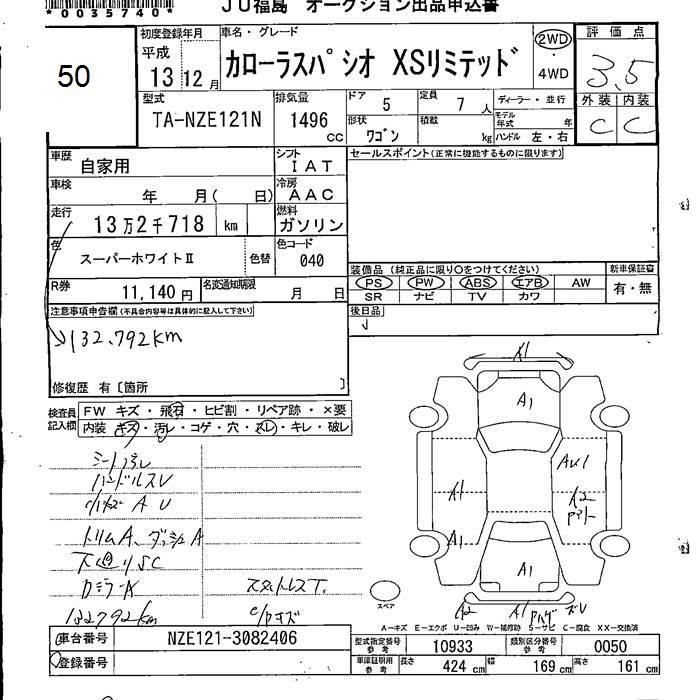 *0035740*
JU福島 オークション出品申込書
50
初度登録年月
平成
13 12月
車名・グレード
カローラスパシオ XSリミテッド
2WD
・
4WD
評価点
3.5
外装 内装
C C
型式
TA-NZE121N
排気量
1496
CC
ドア 5
定員 7 人
ディーラー・並行
形状 ワゴン
積載 kg
モデル年式 年
ハンドル 左・右
車歴 自家用
シフト IAT
セールスポイント(正常に機能するものに限ります)
車検 年 月( 日)
冷房 AAC
走行 13万2千718 km
燃料 ガソリン
色 スーパーホワイトⅡ 色替
色コード 040
装備品 (純正品に限り○をつけてください)
新車保証書
PS PW ABS エアB AW
有・無
SR ナビ TV カワ
R券 11,140円
名変通知期限 月 日
注意事項申告欄(不具合内容等は具体的に記入して下さい)
後日品
132.792km
修復歴 有〔箇所 〕
検査員記入欄
FW キズ・飛石・ヒビ割・リペア跡・×要
内装 キズ・汚レ・コゲ・穴・スレ・キレ・破レ
ハンドルスレ
トリムA、ダッシュA
下廻りSC
DミラーA
スタットレスT.
132792km
A1
A1
AU1
A1
A2
A1
A1
A2
A1
スペア
A-キズ E-エクボ U-凹み W-補修跡 S-サビ C-腐食 XX-交換済
車台番号 NZE121-3082406
登録番号
型式指定番号 参考 10933
類別区分番号 参考 0050
車庫証明用 参考
長さ 424 cm 幅 169 cm 高さ 161 cm